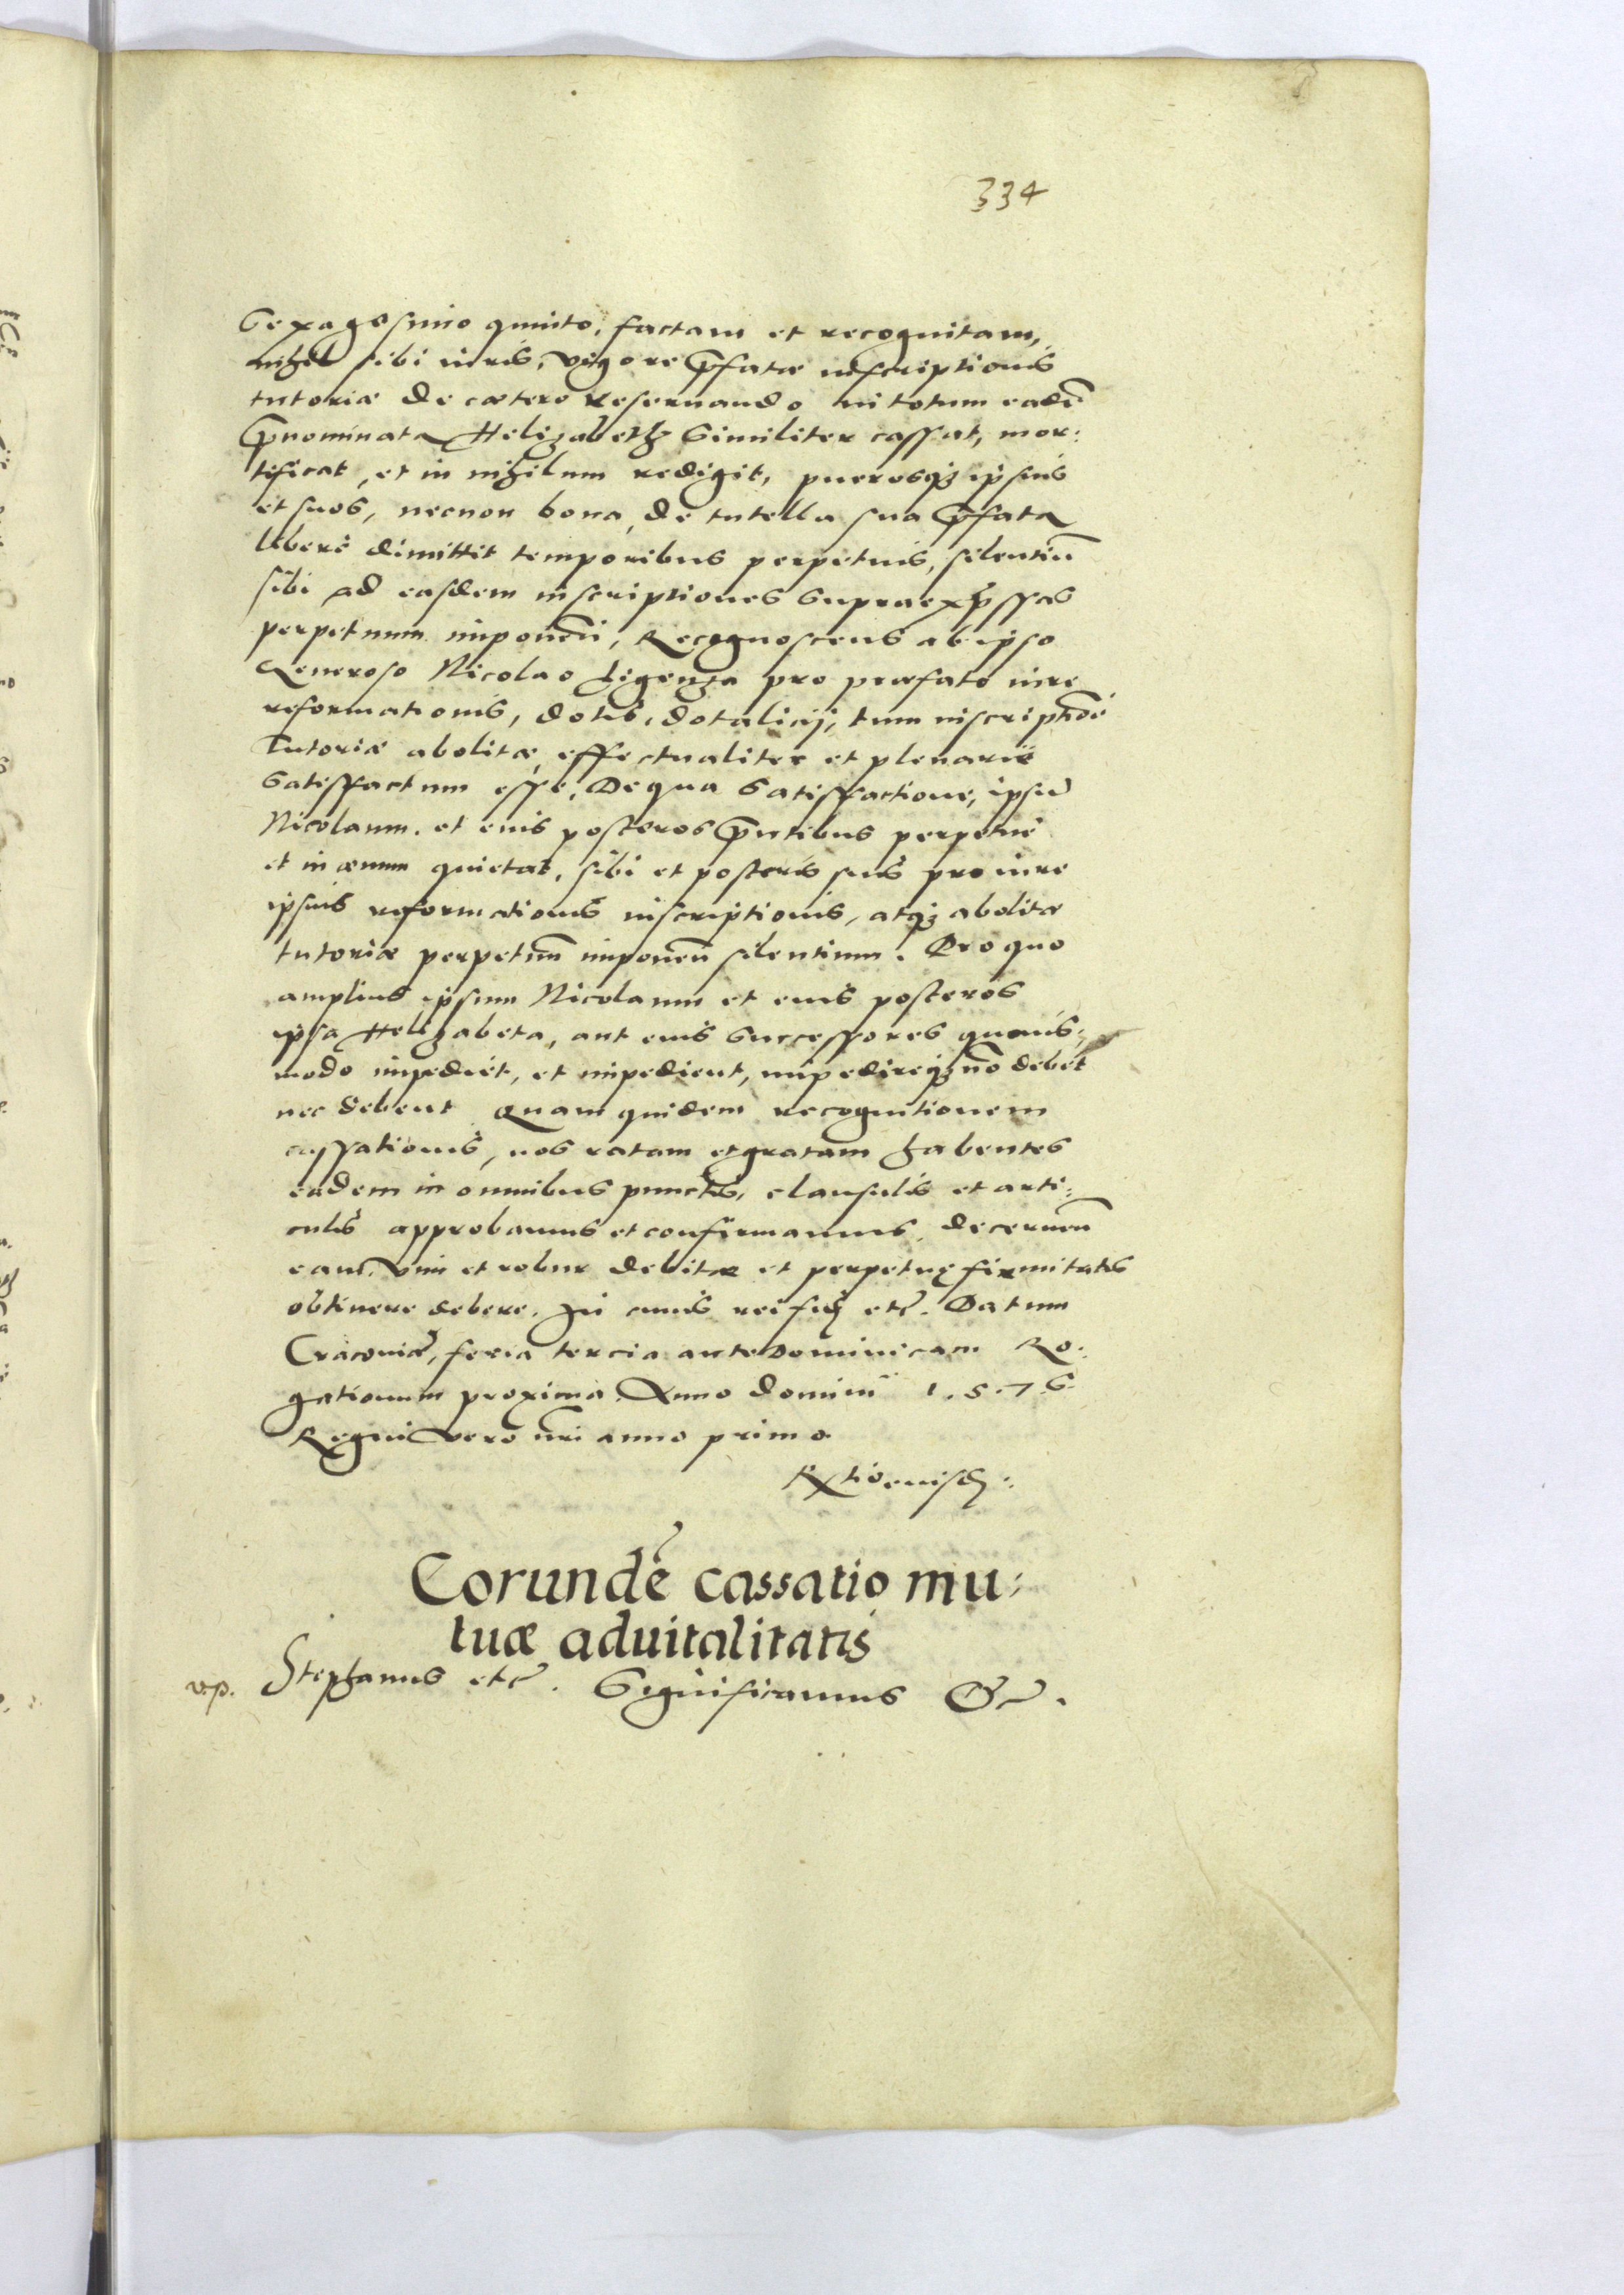 334
Sexagesimo quinto, factam et recognitam,
nihil sibi iuris, vigore p̄fatæ inscriptionis
tutoriæ de cætero reseruando in totum eadē
p̄nominata Helizabeth similiter cassat, mor:
tificat, et in nihilum redigit, puerosqʒ ipsius
et suos, necnon bona, de tutella sua p̄fata
liberè dimittit temporibus perpetuis, silentiū
sibi ad easdem inscriptiones supraexp̄ssas
perpetuum imponeñ, Recognoscens ab ipso
Generoso Nicolao Ligenza pro praefato iure
reformationis, dotis, dotalicij, tum inscriptiōē
Tutoriæ abolitæ, effectualiter et plenariè
satisfactum esse, De qua satisfactione, ipsū
Nicolaum, et eius posteros p̄ntibus perpetuè
et in æuum quietat, sibi et posteris suis pro iure
ipsius reformationis inscriptionis, atqʒ abolitæ
tutoriæ perpetuū imponeñ silentium. Pro quo
amplius ipsum Nicolaum et eius posteros
ipsa Helizabeta, aut eius successores quouis:
modo impediet, et impedient, impedireqʒ nō debet
nec debent Quam quidem recognitionem
cassationis, nos ratam et gratam habentes
eadem in omnibus punctis, clausulis et arti:
culis approbamus et confirmamus, decerneñ
eam, vim et robur debitæ et perpetuę firmitatis
obtinere debere. In cuius rei fidē etc̃. Datum
Cracouiæ, feria tercia ante Dominicam Ro:
gationum proxima Anno domini 1.5.76.
Regni vero nr̄i anno primo
Eorundē cassatio mu:
tuæ aduitalitatis
vp. Stephanus etc̃. Significamus &c̃.